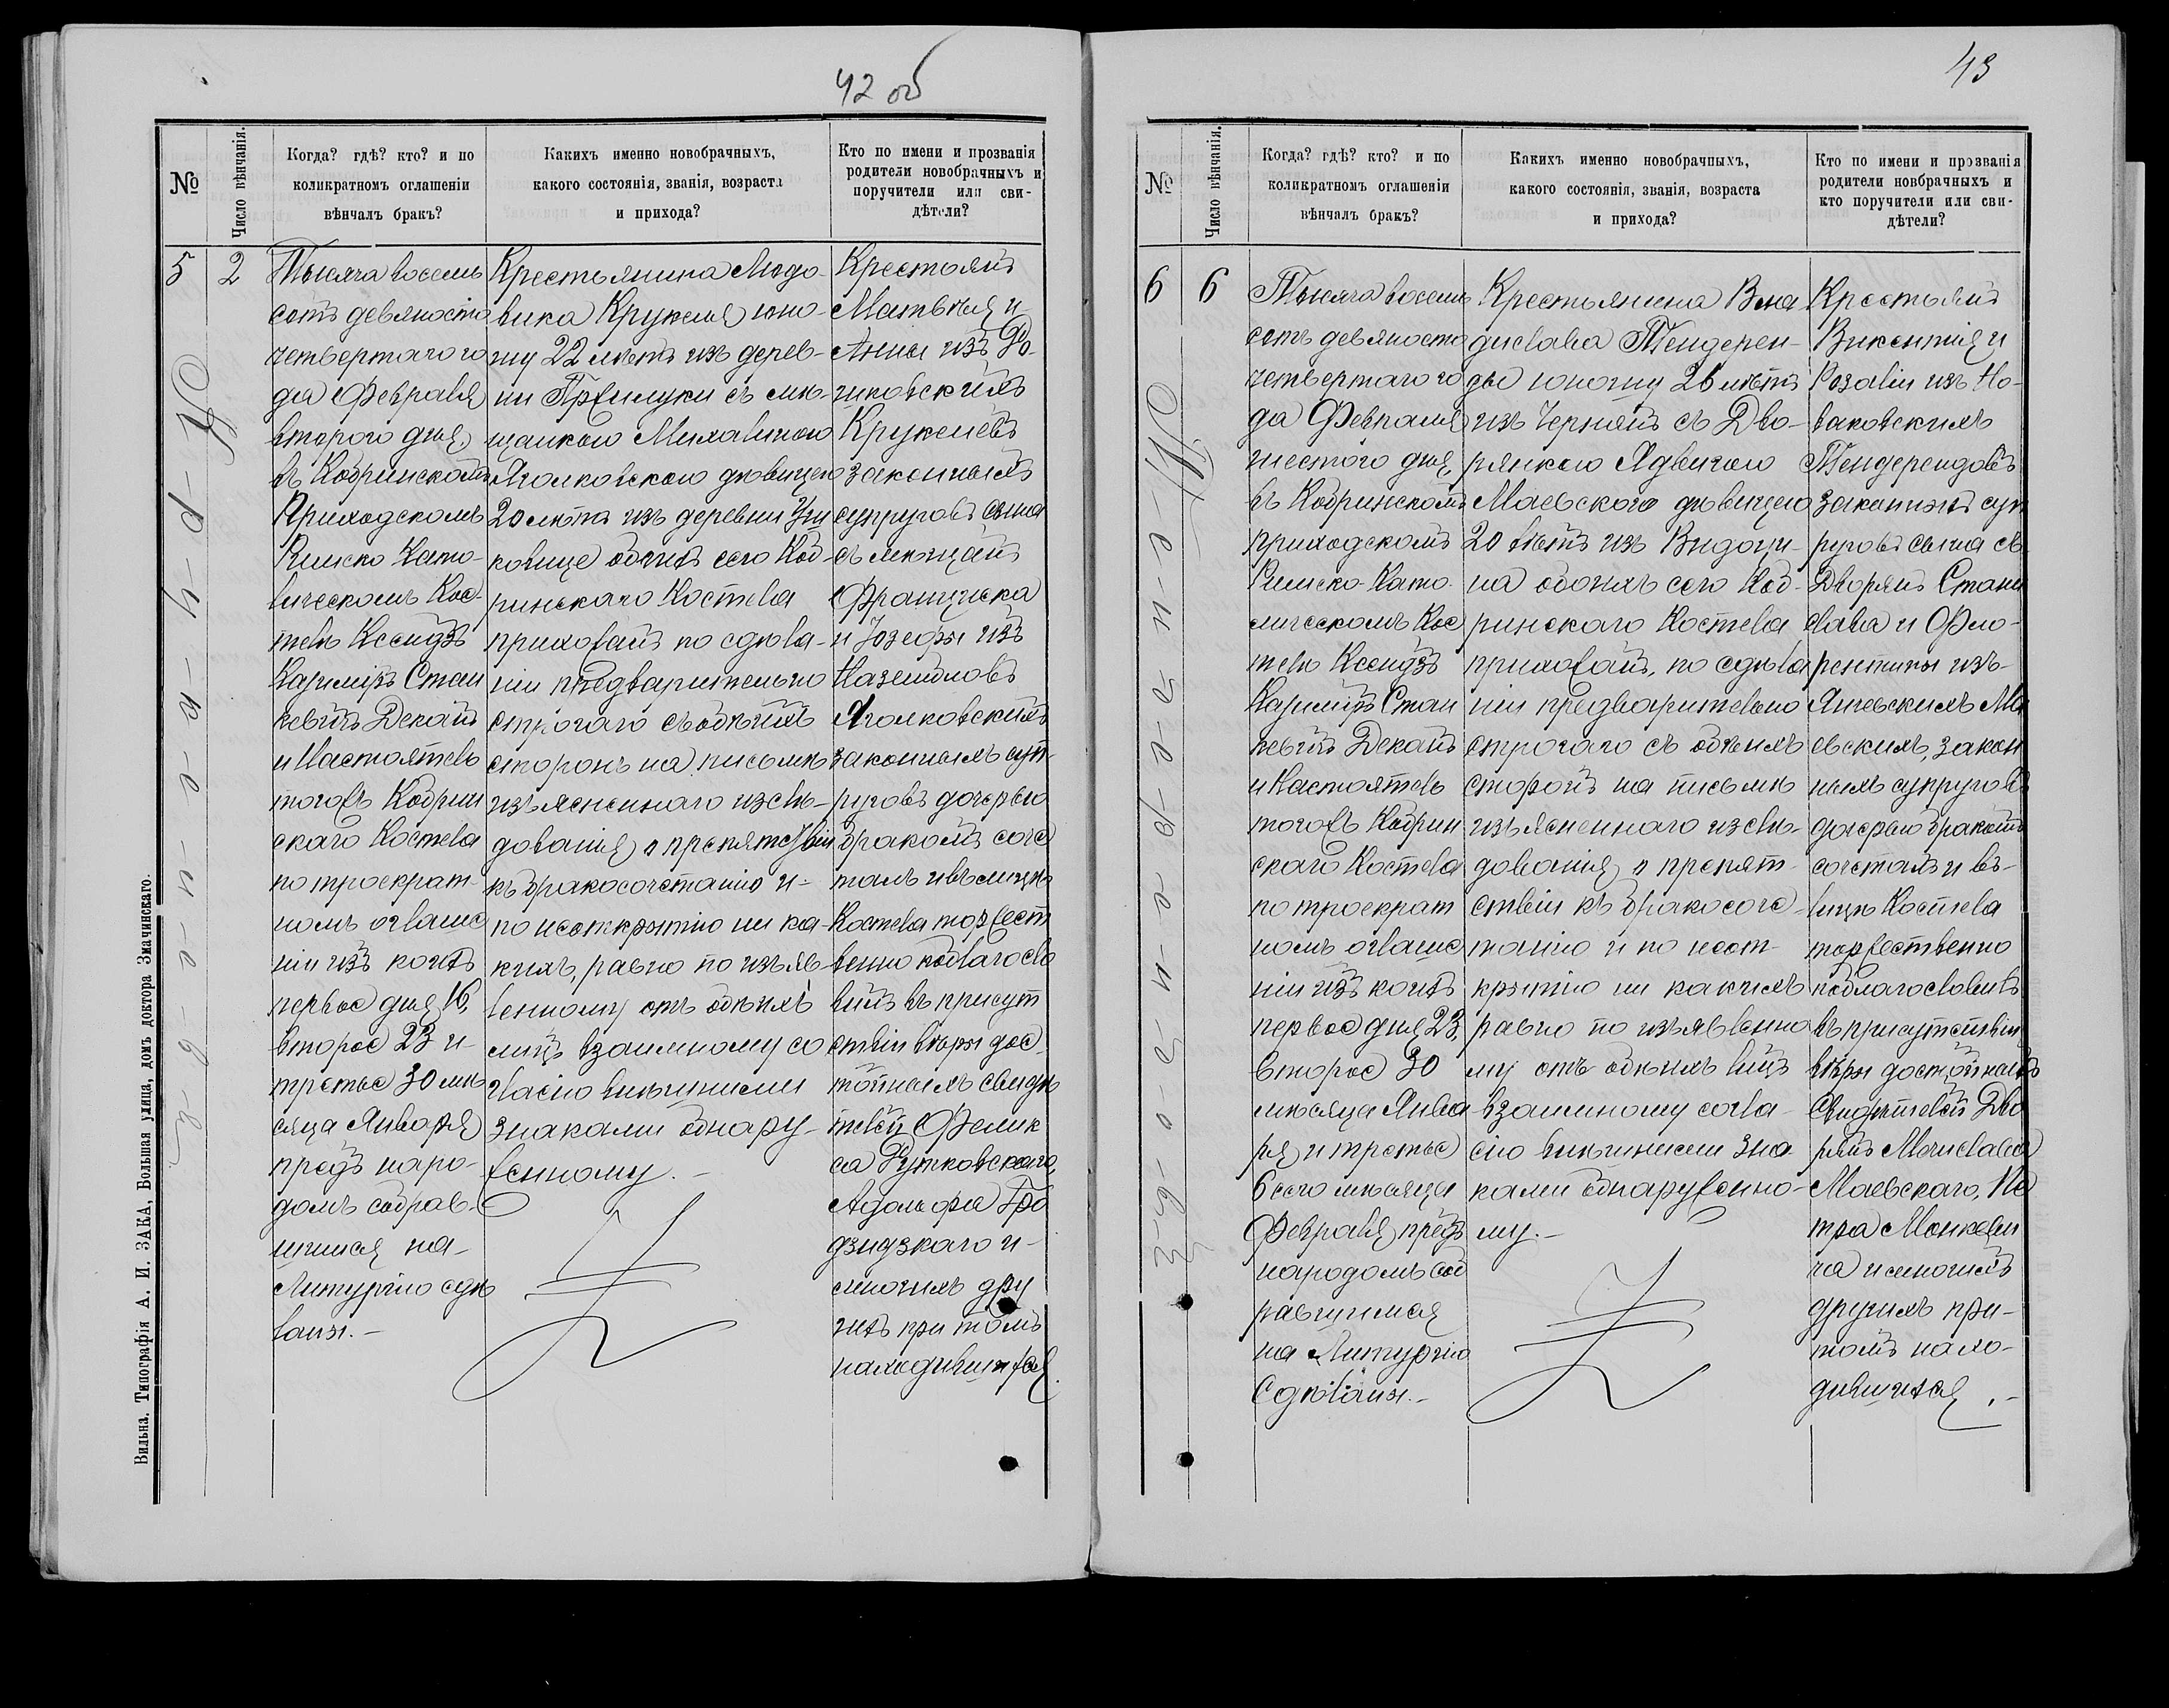 42 об
№
Число вѣнчанія.
Когда? гдѣ? кто? и по
коликратномъ оглашеніи
вѣнчалъ бракъ?
Какихъ именно новобрачныхъ,
какого состоянія, званія, возраста
и прихода?
Кто по имени и прозванія
родители новобрачныхъ и
поручители или сви-
дѣтели?
5
2
Тысяча восемь
сотъ девяносто
четвертаго го
да Февраля
второго дня,
въ Кобринскомъ
Приходскомъ
Римско Като-
лическомъ Кос-
телѣ Ксендзъ
Казиміръ Стан
кевичъ Деканъ
и Настоятель
тогожъ Кобрин
скаго Костела
по троекрат-
номъ оглаше
ніи изъ коихъ
первое дня 16,
второе 23 и-
третье 30 мѣ
сяца Января
предъ наро-
домъ собрав-
шимся на-
Литургію сдѣ
ланы.-
Крестьянина Людо-
вика Кружеля юно-
шу 22 лѣтъ изъ дерев-
ни Прилуки съ мѣ-
щанкою Михалиною
Яголковскою дѣвицею
20 лѣтъ изъ деревни
ковице обоихъ сего Коб-
ринскаго Костела
прихожанъ по сдѣла-
ніи предварительно
строгаго съ обѣихъ
сторонъ на письмѣ
изъясненнаго изслѣ-
дованія о препятствіи
къ бракосочетанію и-
по неоткрытію ни ка-
кихъ, равно по изъяв-
ленному отъ обѣихъ
лицъ взаимному со
гласію внѣшними
знаками обнару-
женному.-
Крестьянъ
Матвѣя и
Анны изъ
Кружелевъ
законныхъ
супруговъ сына
съ мѣщанъ
Франциска
и Юзефы изъ
Яголковскихъ
законныхъ суп-
руговъ дочерью
бракомъ соче
талъ и въ лицѣ
Костела торжест
венно поблагосло
вилъ въ присут
ствіи вѣры дос-
тойныхъ свидѣ
телей Феликса
Рутковскаго,
Адольфа Гро
дзидзкаго и-
многихъ дру
гихъ при томъ
находившихся.
Вильна. Типографія А. И. ЗАКА, Большая улица, домъ доктора Змачинскаго.
43
№
Число вѣнчанія.
Когда? гдѣ? кто? и по
коликратномъ оглашеніи
вѣнчалъ бракъ?
Какихъ именно новобрачныхъ,
какого состоянія, званія, возраста
и прихода?
Кто по имени и прозванія
родители новбрачныхъ и
кто поручители или сви-
дѣтели?
6
6
Тысяча восемь
сотъ девяносто
четвертаго го
да Февраля
шестого дня,
въ Кобринскомъ
приходскомъ
Римско-Като-
лическомъ Кос
телѣ Ксендзъ
Казиміръ Стан
кевичъ Деканъ
и Настоятель
тогожъ Кобрин
скаго Костела
по троекрат
номъ оглаше
ніи изъ коихъ
первое дня 23,
второе 30
мѣсяца Янва
ря и третье
6 сего мѣсяца
Февраля предъ
народомъ соб
равшимся
на Литургію
Сдѣланы.-
Крестьянина Вла
дислава Тендерен-
ды юношу 26 лѣтъ
изъ Чернянъ съ Дво-
рянкою Ядвигою
Маевскою дѣвицею
20 лѣтъ изъ
на обоихъ сего Коб-
ринскаго Костела
прихожанъ, по сдѣла
ніи предварительно
строгаго съ обѣихъ
сторонъ на письмѣ
изъясненнаго изслѣ-
дованія о препят-
ствіи къ бракосоче-
танію и по неот-
крытію ни какихъ
равно по изъявленно
му отъ обѣихъ лицъ
взаимному согла-
сію внѣшними зна
ками обнаруженно-
му.-
Крестьянъ
Викентія и
Розаліи изъ Но-
ваковскихъ
Тендерендовъ
законныхъ суп
руговъ сына съ
Дворянъ Стани
слава и Фло-
рентины изъ-
Янчевскихъ Ма
евскихъ, закон
ныхъ супруговъ
дочерью бракомъ
сочеталъ и въ-
лицѣ Костела
торжественно
поблагословилъ
въ присутствіи
вѣры достойныхъ
Свидѣтелей Дво
рянъ Мечислава
Маевскаго, Пе
тра Монкеви
ча и многихъ
другихъ при-
томъ нахо-
дившихся.-